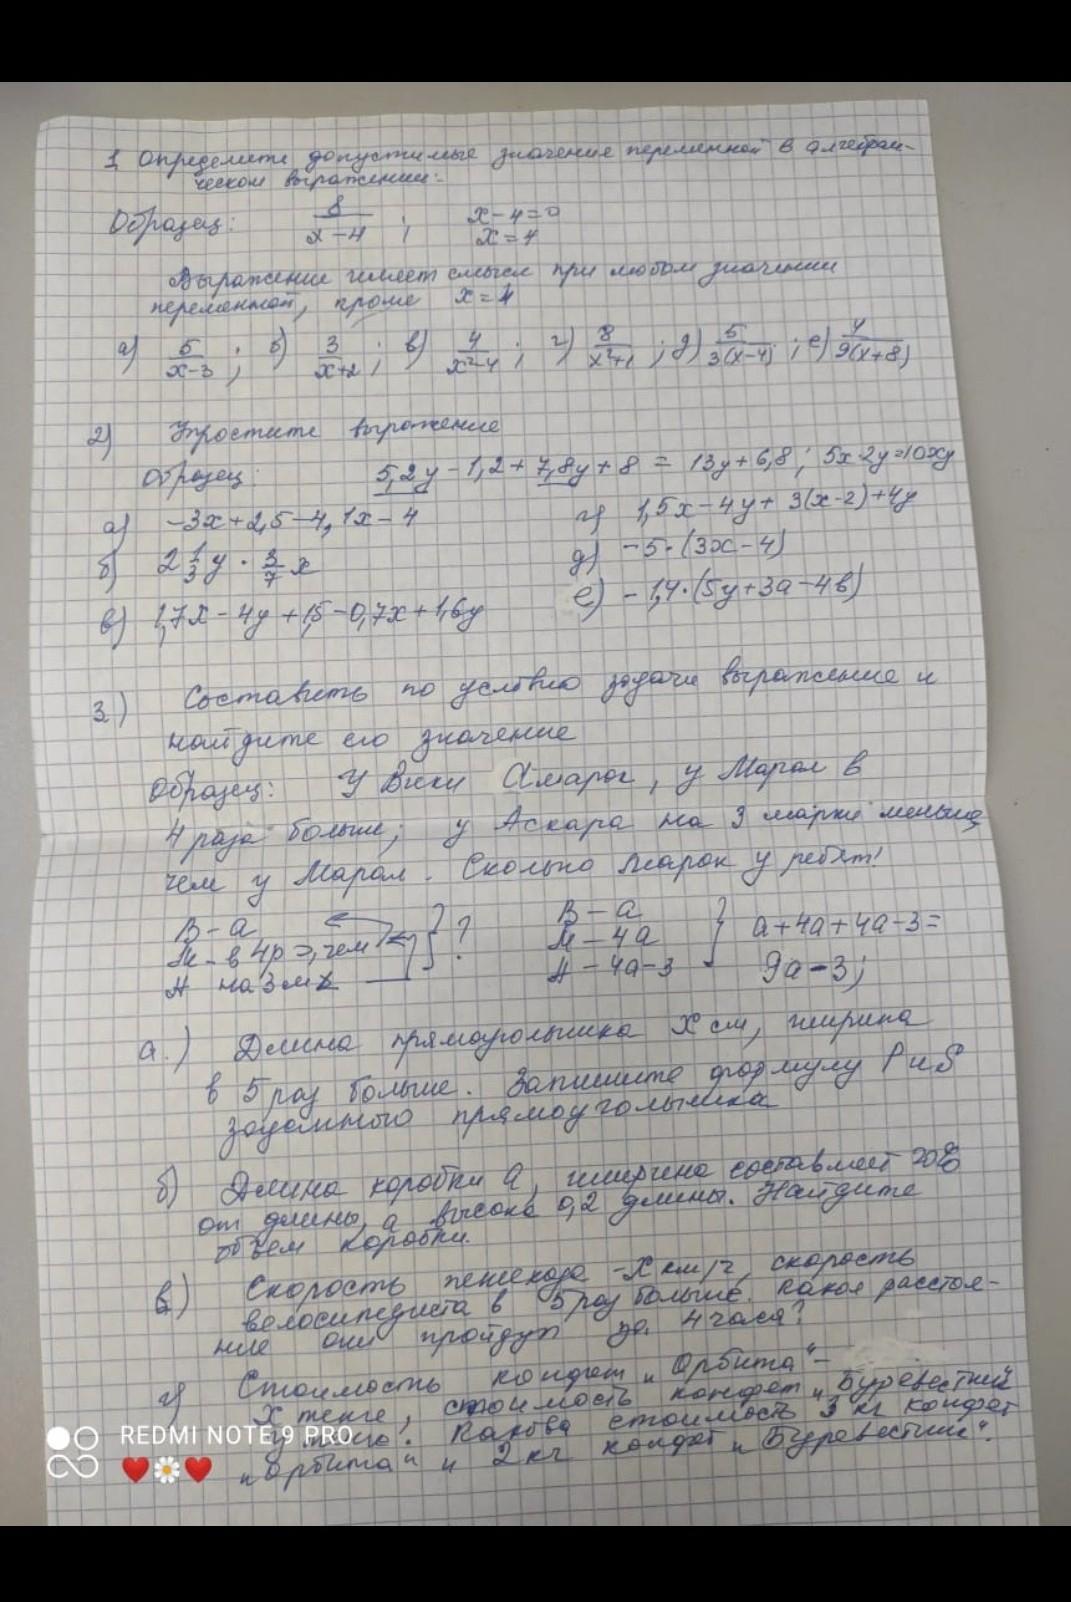 1. Определите допустимые значение переменной в алгебраи-
ческом выражении:
Образец: 8/(x-4) ; x-4=0
x=4
Выражение имеет смысл при любом значении
переменной, кроме x=4
а) 5/(x-3) ; б) 3/(x+2) ; в) 4/(x²-4) ; г) 8/(x²+1) ; д) 5/(3(x-4)) ; е) 4/(9(x+8))
2) Упростите выражение
Образец: 5,2y-1,2+7,8y+8 = 13y+6,8; 5x·2y=10xy
а) -3x+2,5-4,1x-4
г) 1,5x-4y+3(x-2)+4y
б) 2 1/3 y · 3/7 x
д) -5·(3x-4)
в) 1,7x-4y+1,5-0,7x+1,6y
е) -1,4·(5y+3a-4b)
3.) Составить по условию задачи выражение и
найдите его значение
Образец: У Вики а марок, у Марал в
4 раза больше; у Аскара на 3 марки меньше,
чем у Марал. Сколько марок у ребят!
В-а
М-в 4р >, чем
А на 3м <
?
В-а
М-4а
А-4а-3
а+4а+4а-3=
9а-3;
а.) Длина прямоугольника x см, ширина
в 5 раз больше. Запишите формулу P и S
заданного прямоугольника
б) Длина коробки а, ширина составляет 20%
от длины, а высота 0,2 длины. Найдите
объем коробки.
в) Скорость пешехода -x км/ч, скорость
велосипедиста в 5 раз больше. Какое расстоя-
ние они пройдут за 4 часа?
г) Стоимость конфет "Орбита"-
x тенге, стоимость конфет "Буревестник"
y тенге. Какова стоимость 3 кг конфет
"Орбита" и 2 кг конфет "Буревестник".
REDMI NOTE 9 PRO